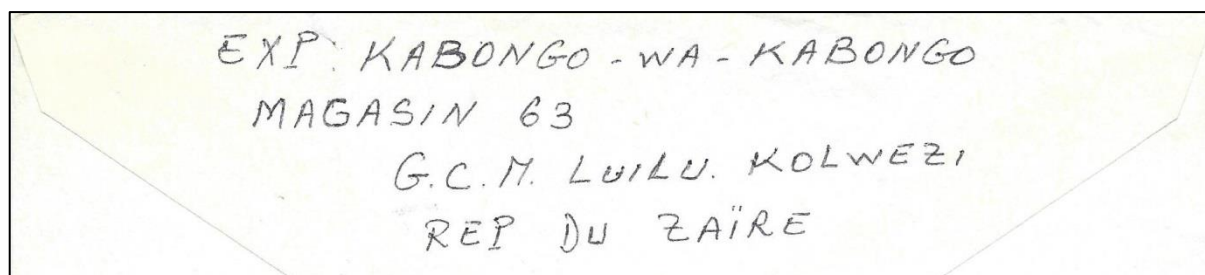 EXP: KABONGO - WA - KABONGO
MAGASIN 63
G.C.M. LUILU. KOLWEZI
REP DU ZAÏRE